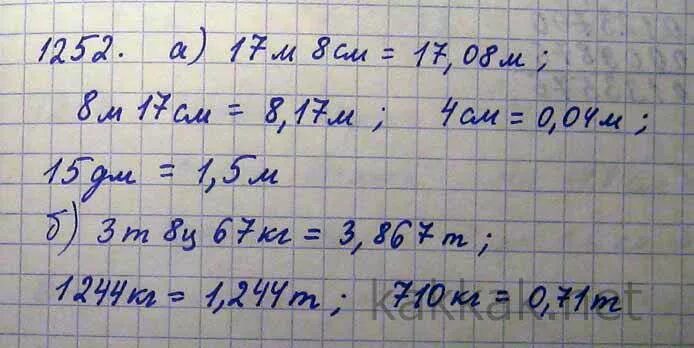 1252. а) 17м 8см = 17,08м;
8м 17см = 8,17м; 4см = 0,04м;
15дм = 1,5м
б) 3т 8ц 67кг = 3,867т;
1244кг = 1,244т; 710кг = 0,71т
kakkak.net